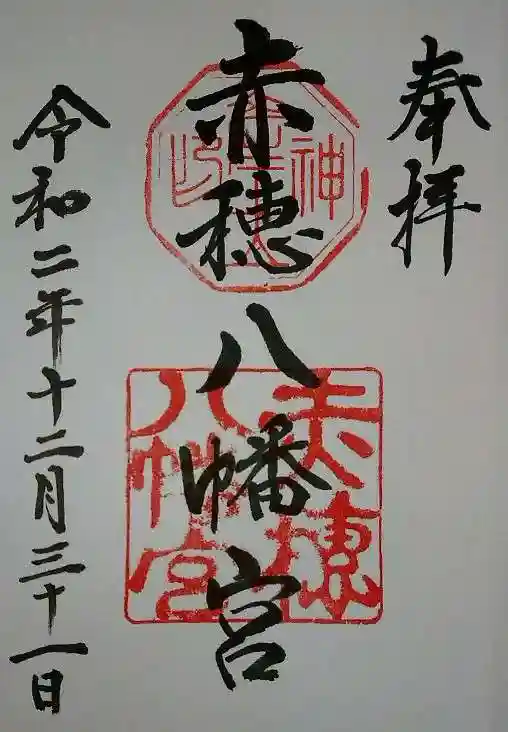 奉拝
赤穂八幡宮
赤穂
八幡宮
令和二年十二月三十一日